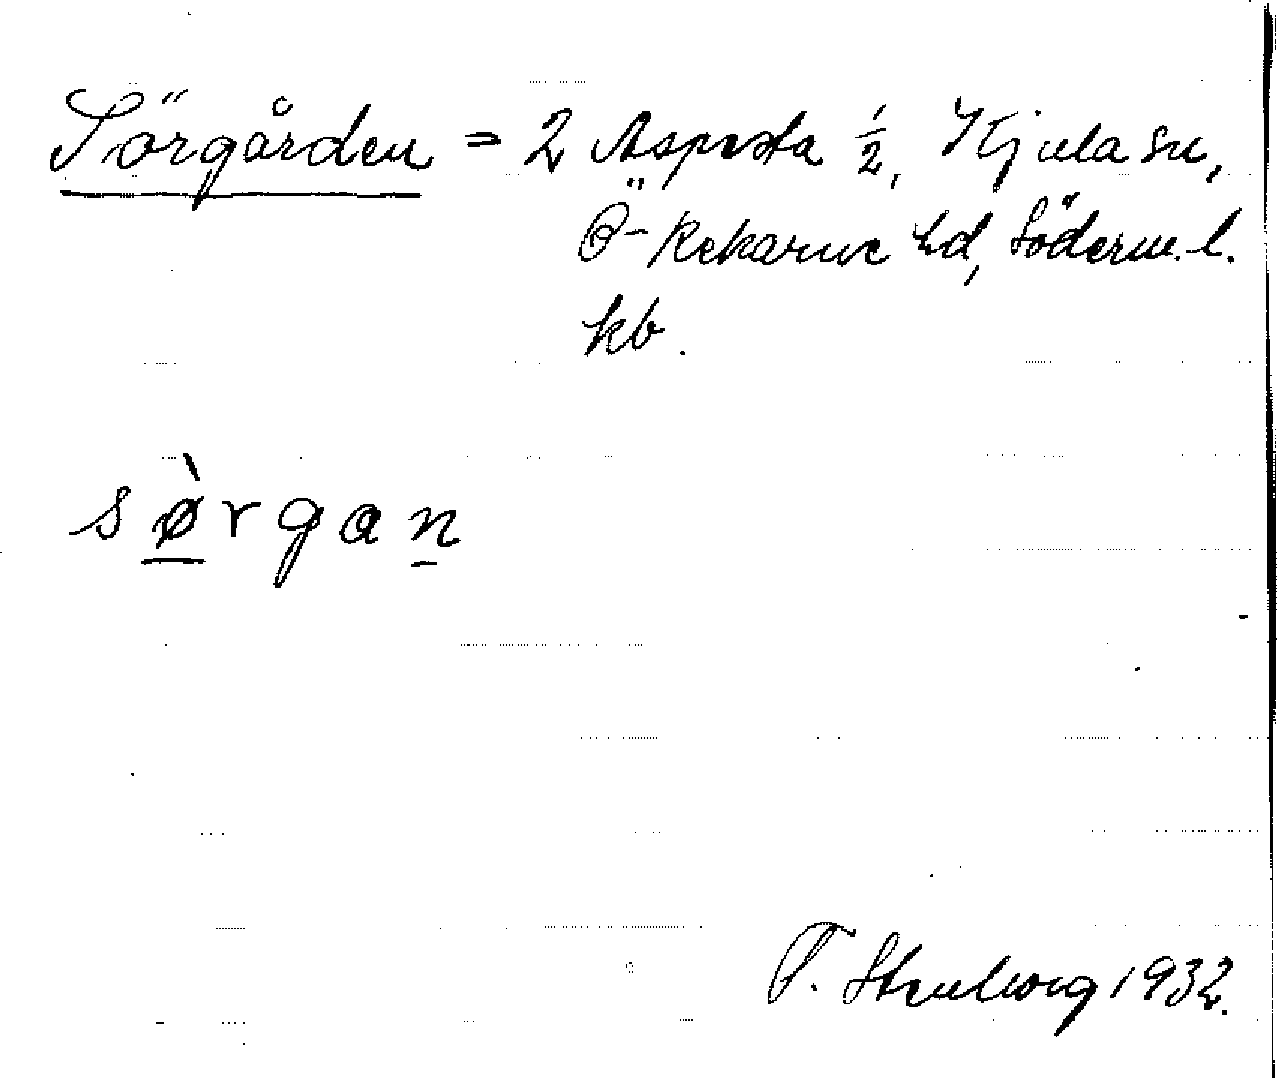 Sörgården = 2 Aspesta 1/2, Kjula sn,
Ö-Rekarne hd, Söderm. l.
kb.
sø̀rgan
T. Stenborg 1932.